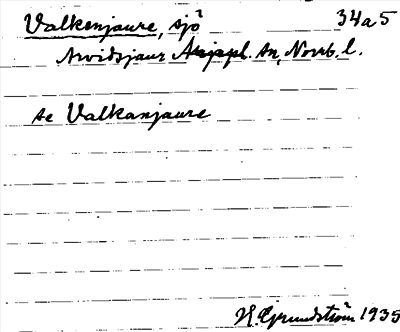 Valkenjaure, sjö 34a5
Arvidsjaur sn, Norrb. l.
se Valkanjaure
H. Grundström 1935